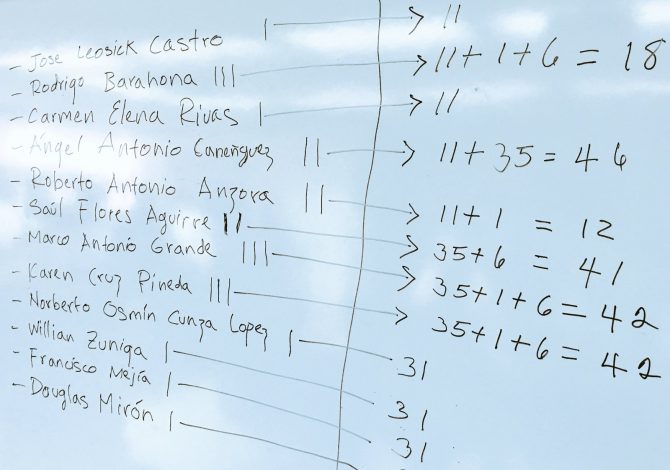 - Jose Leosick Castro | → 11
- Rodrigo Barahona ||| → 11+1+6 = 18
- Carmen Elena Rivas | → 11
- Ángel Antonio Canenguez || → 11+35 = 46
- Roberto Antonio Anzora || → 11+1 = 12
- Saúl Flores Aguirre || → 35+6 = 41
- Marco Antonio Grande ||| → 35+1+6 = 42
- Karen Cruz Pineda ||| → 35+1+6 = 42
- Norberto Osmín Cunza Lopez | 31
- Willian Zuniga | 31
- Francisco Mejía | 31
- Douglas Mirón |